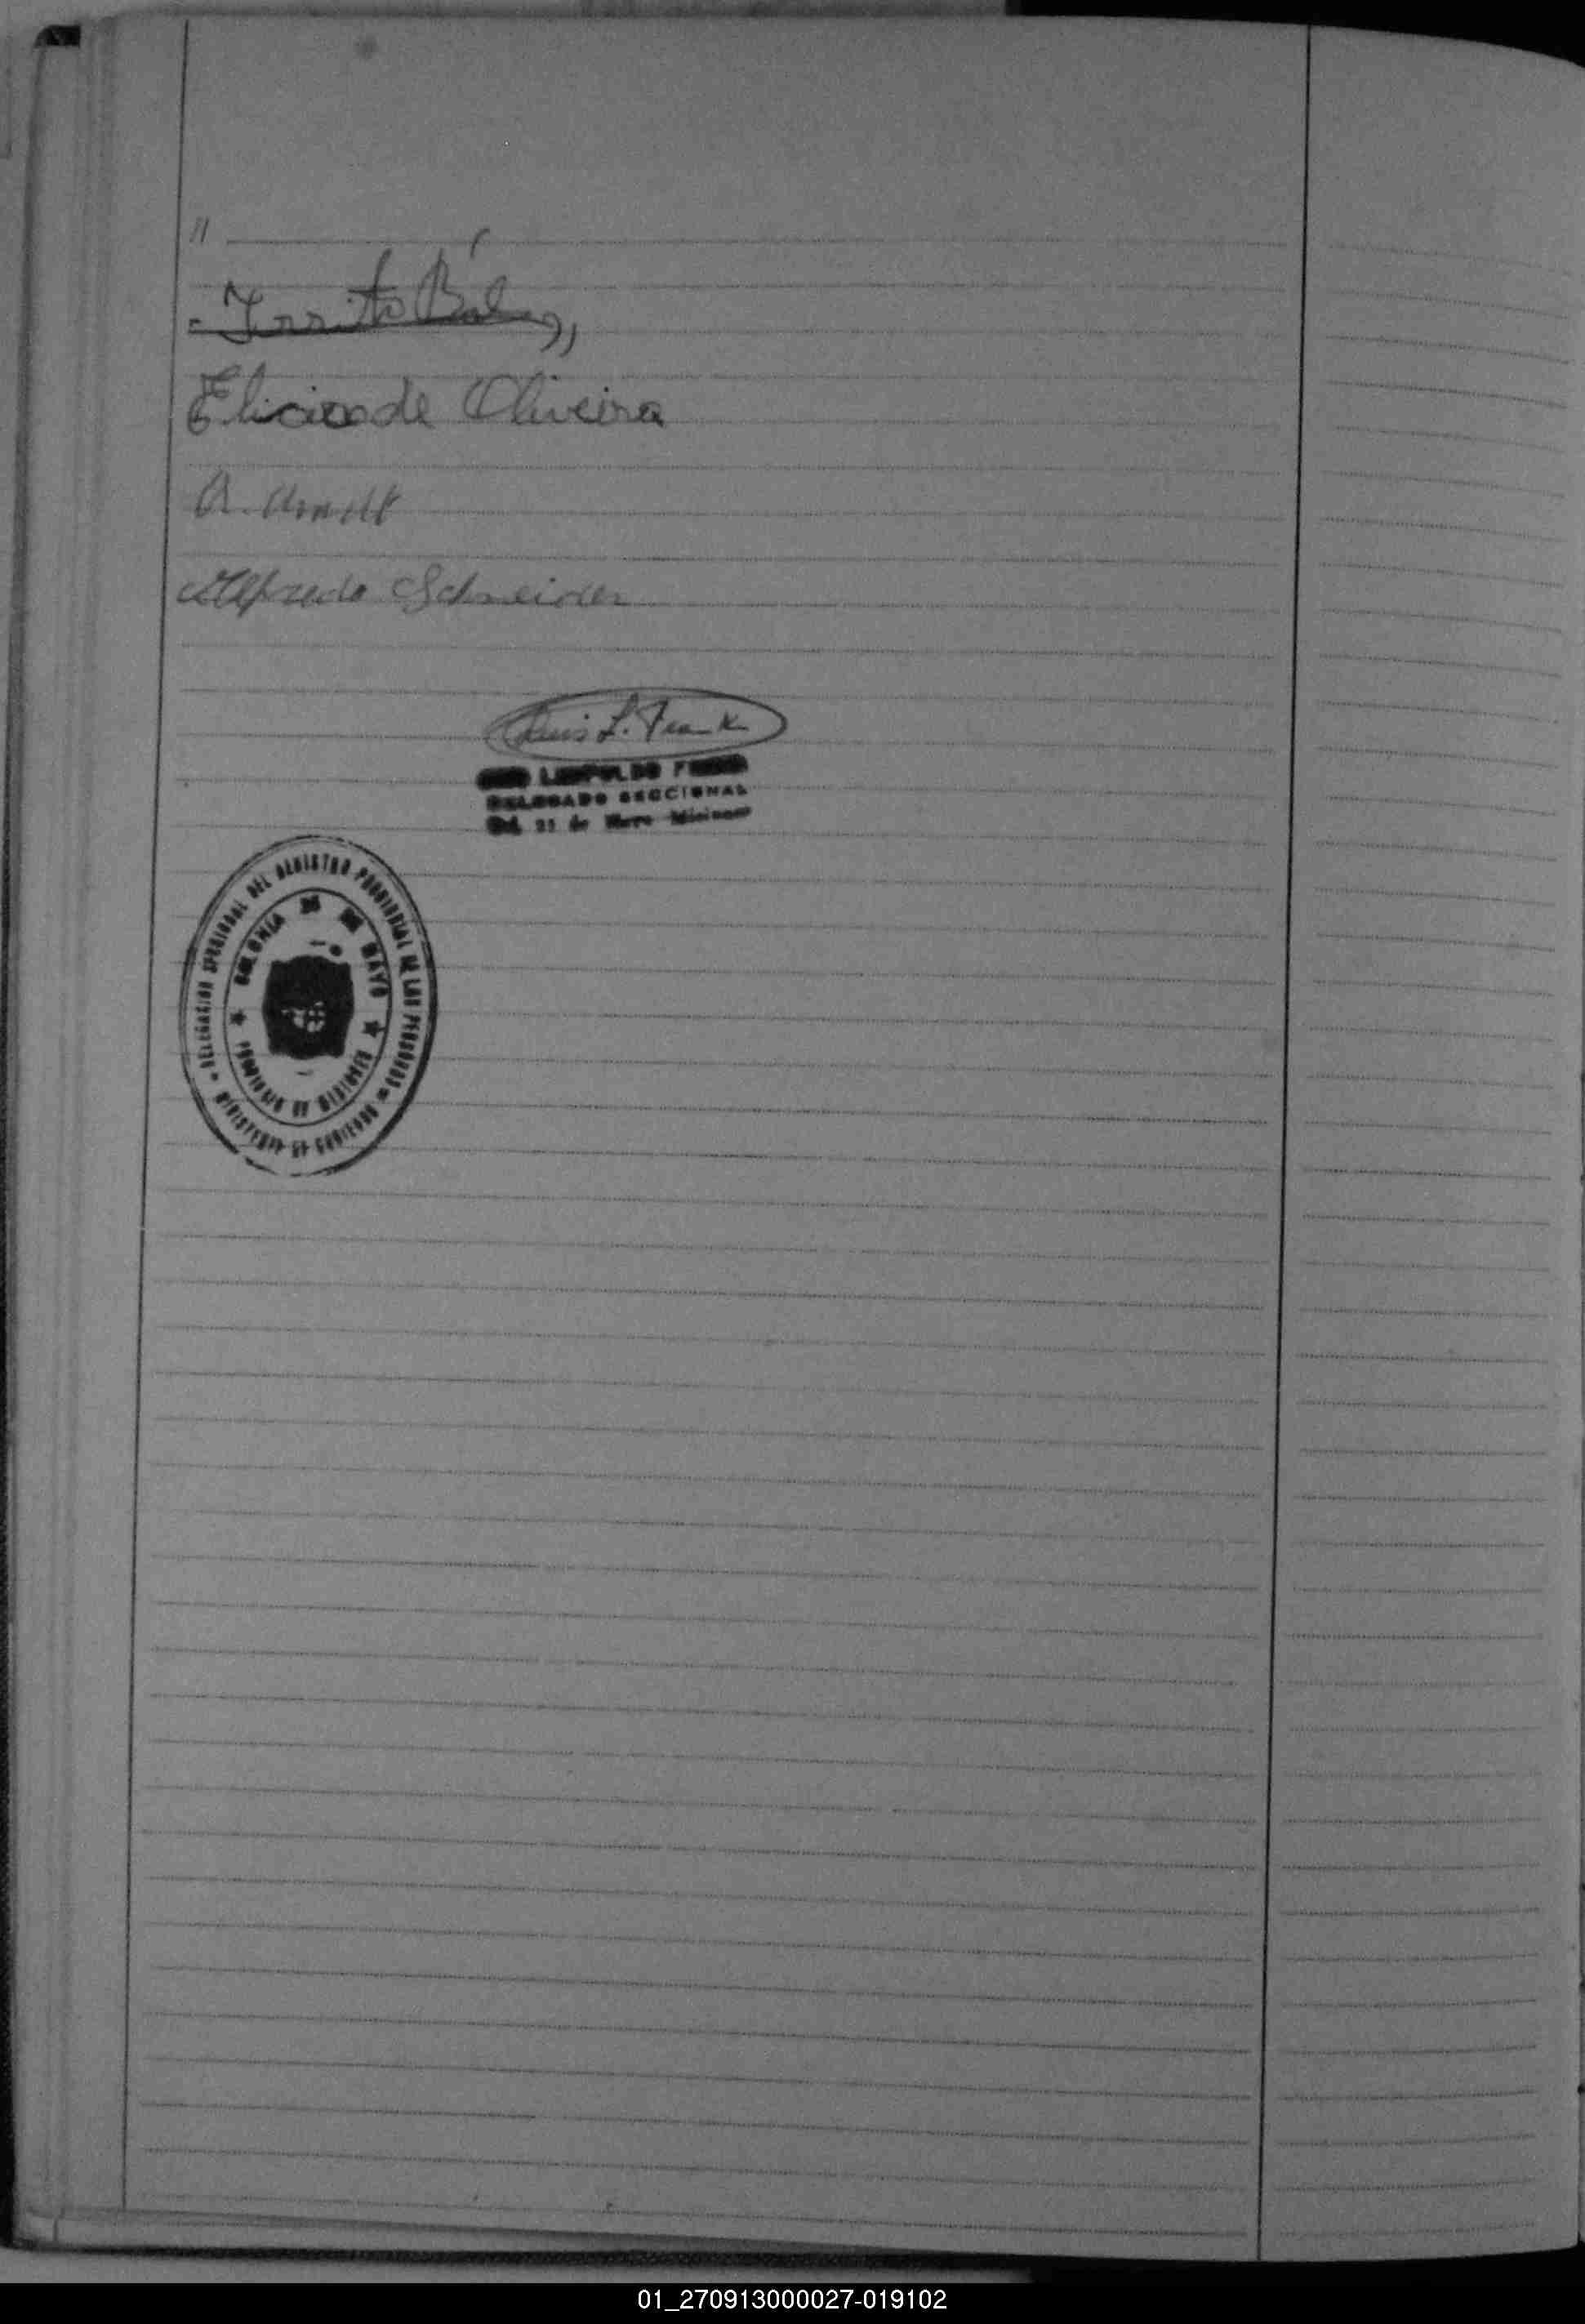 //
Elicio de Oliveira
A. Arndt
Alfredo Schneider
Luis L. Frank
LEOPOLDO
DELEGADO SECCIONAL
Col. 25 de Mayo Misiones
DELEGACION SECCIONAL DEL REGISTRO PROVINCIAL DE LAS PERSONAS
COLONIA 25 DE MAYO
PROVINCIA DE MISIONES
MINISTERIO DE GOBIERNO
01_270913000027-019102